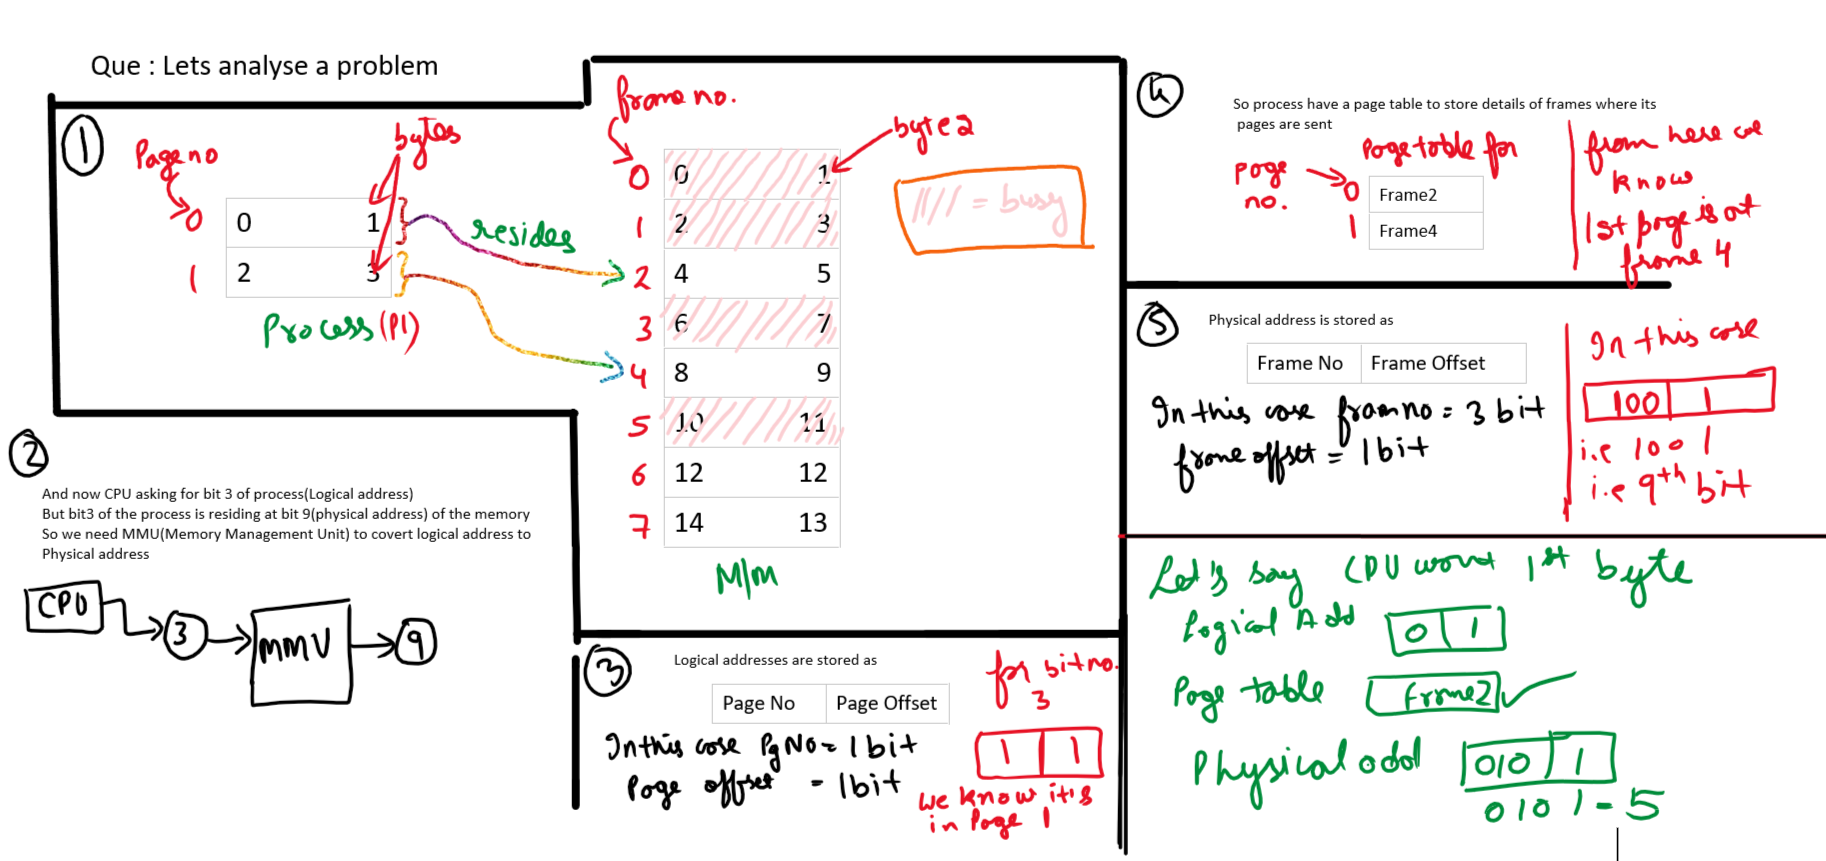 Que : Lets analyse a problem
1
Page no
bytes
0
0 1
1
2 3
Process (P1)
resides
frame no.
byte 2
0
0 1
1
2 3
2
4 5
3
6 7
4
8 9
5
10 11
6
12 12
7
14 13
M/m
//// = busy
2
And now CPU asking for bit 3 of process(Logical address)
But bit3 of the process is residing at bit 9(physical address) of the memory
So we need MMU(Memory Management Unit) to covert logical address to
Physical address
CPU
3
MMU
9
3
Logical addresses are stored as
Page No Page Offset
In this case Pg No = 1 bit
Page offset = 1 bit
for bit no.
3
1 1
we know it's
in Page 1
4
So process have a page table to store details of frames where its
pages are sent
Page table for
page
no.
0
Frame2
1
Frame4
from here we
know
1st page is at
frame 4
5
Physical address is stored as
Frame No Frame Offset
In this case fram no = 3 bit
frame offset = 1 bit
In this case
100 1
i.e 100 1
i.e 9th bit
Let's say CPU want 1st byte
Logical Add 0 1
Page table frame2
Physical add 010 1
0101 - 5